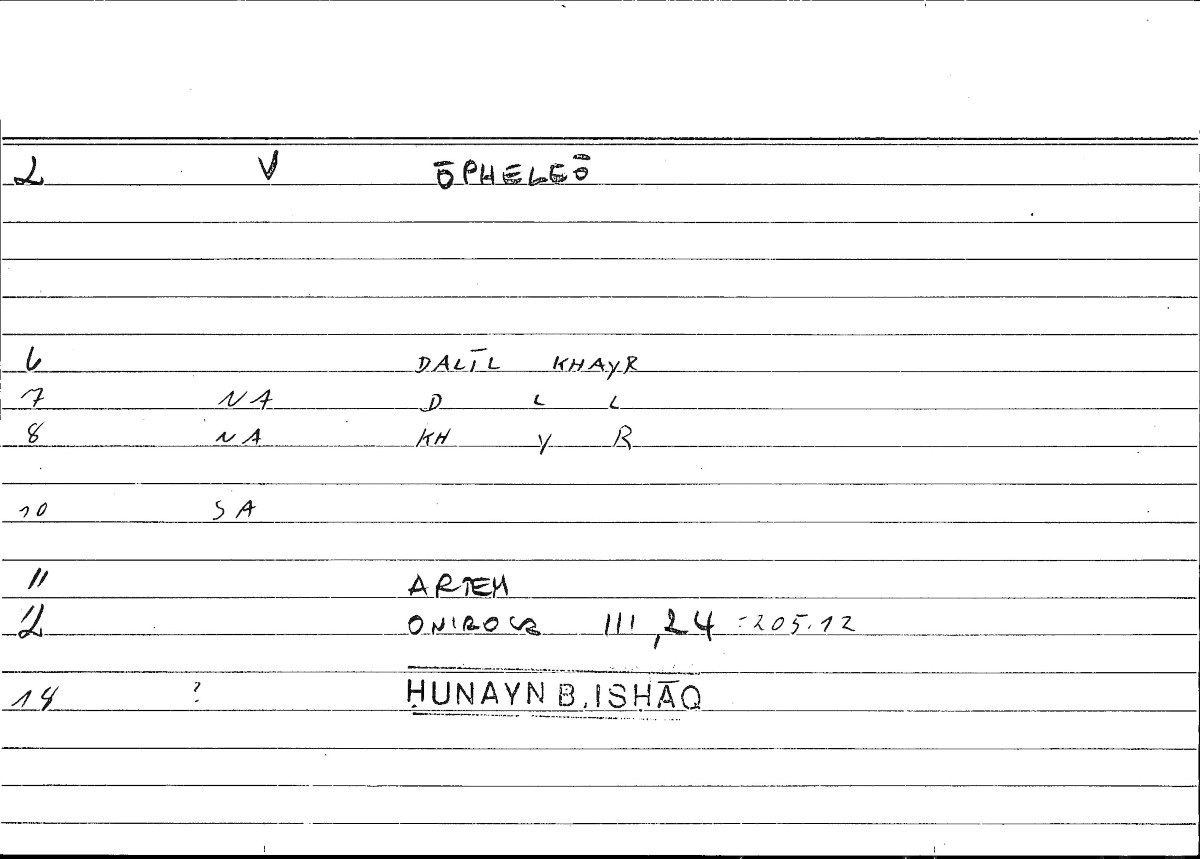 2 V ŌPHELEŌ
6 DALĪL KHAYR
7 NA D L L
8 NA KH Y R
10 SA
11 ARTEM
12 ONIROCR III,24 =205.12
14 ? ḤUNAYN B. ISḤĀQ